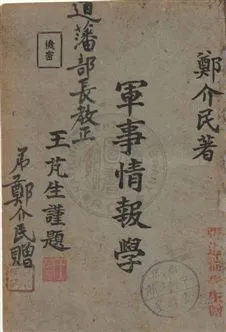 鄭介民著
軍事情報學
王芃生謹題
機密
道藩部長教正
弟鄭介民贈